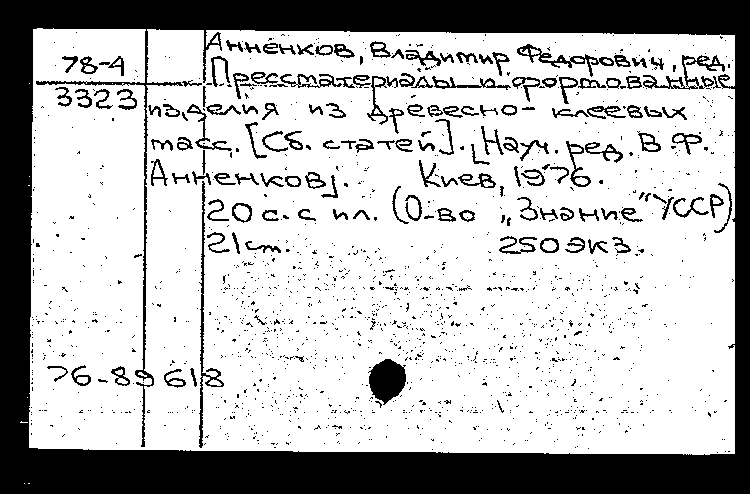 78-4
Анненков, Владимир Федорович, ред.
Прессматериалы и формованные
3323 изделия из древесно-клеевых
масс. [Сб. статей]. [Науч. ред. В.Ф.
Анненков]. Киев, 1976.
20 с. с ил. (О-во „Знание" УССР).
21 см. 250 экз.
76-89618